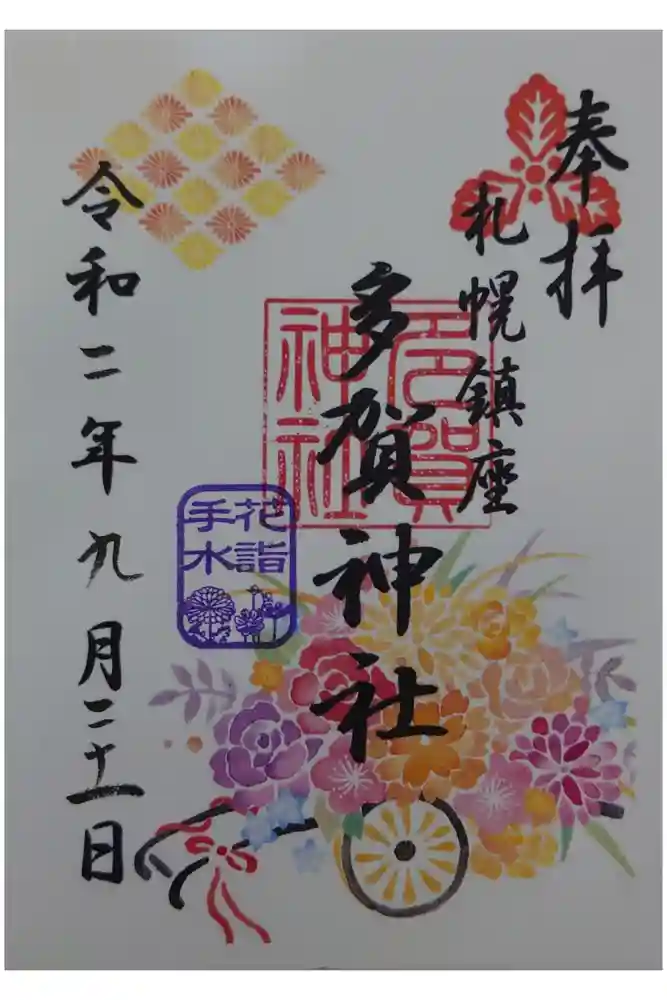 奉拝
札幌鎮座
多賀神社
多賀
神社
花詣
手水
令和二年九月二十一日